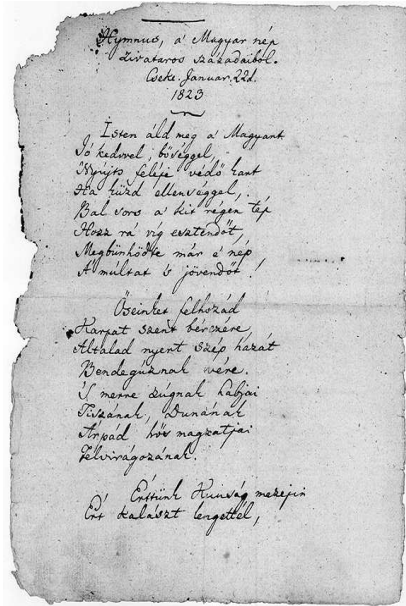 Hymnus, a' Magyar nép
zivataros századaiból.
Cseke. Januar. 22d.
1823
Isten áld meg a' Magyart
Jó kedvvel, bőséggel,
Nyújts feléje védő kart
Ha küzd ellenséggel,
Bal sors a' kit régen tép
Hozz rá víg esztendőt,
Megbünhödte már e' nép
A' múltat 's jövendőt!
Őseinket felhozád
Karpat szent bérczére,
Általad nyert szép hazát
Bendegúznak vére.
'S merre zúgnak habjai
Tiszának, Dunának
Árpád hős magzatjai
Felvirágozának.
Értünk Kunság mezejin
Ért kalászt lengettél,